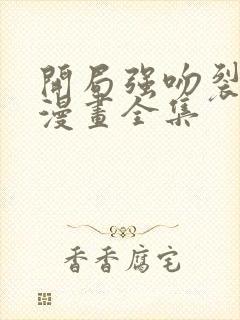 開局强吻裂
漫畫全集
香香腐宅